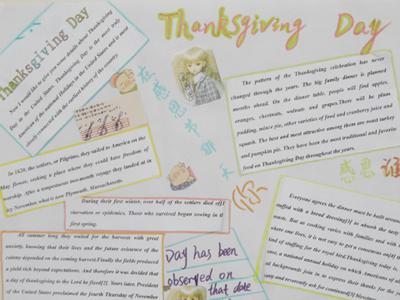 Thanksgiving Day
Thanksgiving Day
Now I would like to give you some details about Thanksgiving
Day in the United States. Thanksgiving Day is the most truly
American of the national Holidays in the United States and is most
closely connected with the history of the country.
The pattern of the Thanksgiving celebration has never
changed through the years. The big family dinner is planned
months ahead. On the dinner table, people will find apples,
oranges, chestnuts, walnuts and grapes. There will be plum
pudding, mince pie, other varieties of food and cranberry juice and
squash. The best and most attractive among them are roast turkey
and pumpkin pie. They have been the most traditional and favorite
food on Thanksgiving Day throughout the years.
在感恩节
In 1620, the settlers, or Pilgrims, they sailed to America on the
May flower, seeking a place where they could have freedom of
worship. After a tempestuous two-month voyage they landed at in
November, what is now Plymouth, Massachusetts.
感恩谁
你
During their first winter, over half of the settlers died of
starvation or epidemics. Those who survived began sowing in the
first spring.
Everyone agrees the dinner must be built around
stuffed with a bread dressing to absorb the tasty
roast. But as cooking varies with families and with
where one lives, it is not easy to get a consensus on
kind of stuffing for the royal bird. Thanksgiving today
case, a national annual holiday on which Americans of
backgrounds join in to express their thanks for the
and reverently ask for continued blessings.
All summer long they waited for the harvests with great
anxiety, knowing that their lives and the future existence of the
colony depended on the coming harvest. Finally the fields produced
a yield rich beyond expectations. And therefore it was decided that
a day of thanksgiving to the Lord be fixed. Years later, President
of the United States proclaimed the fourth Thursday of November
Day has been
observed on
that date